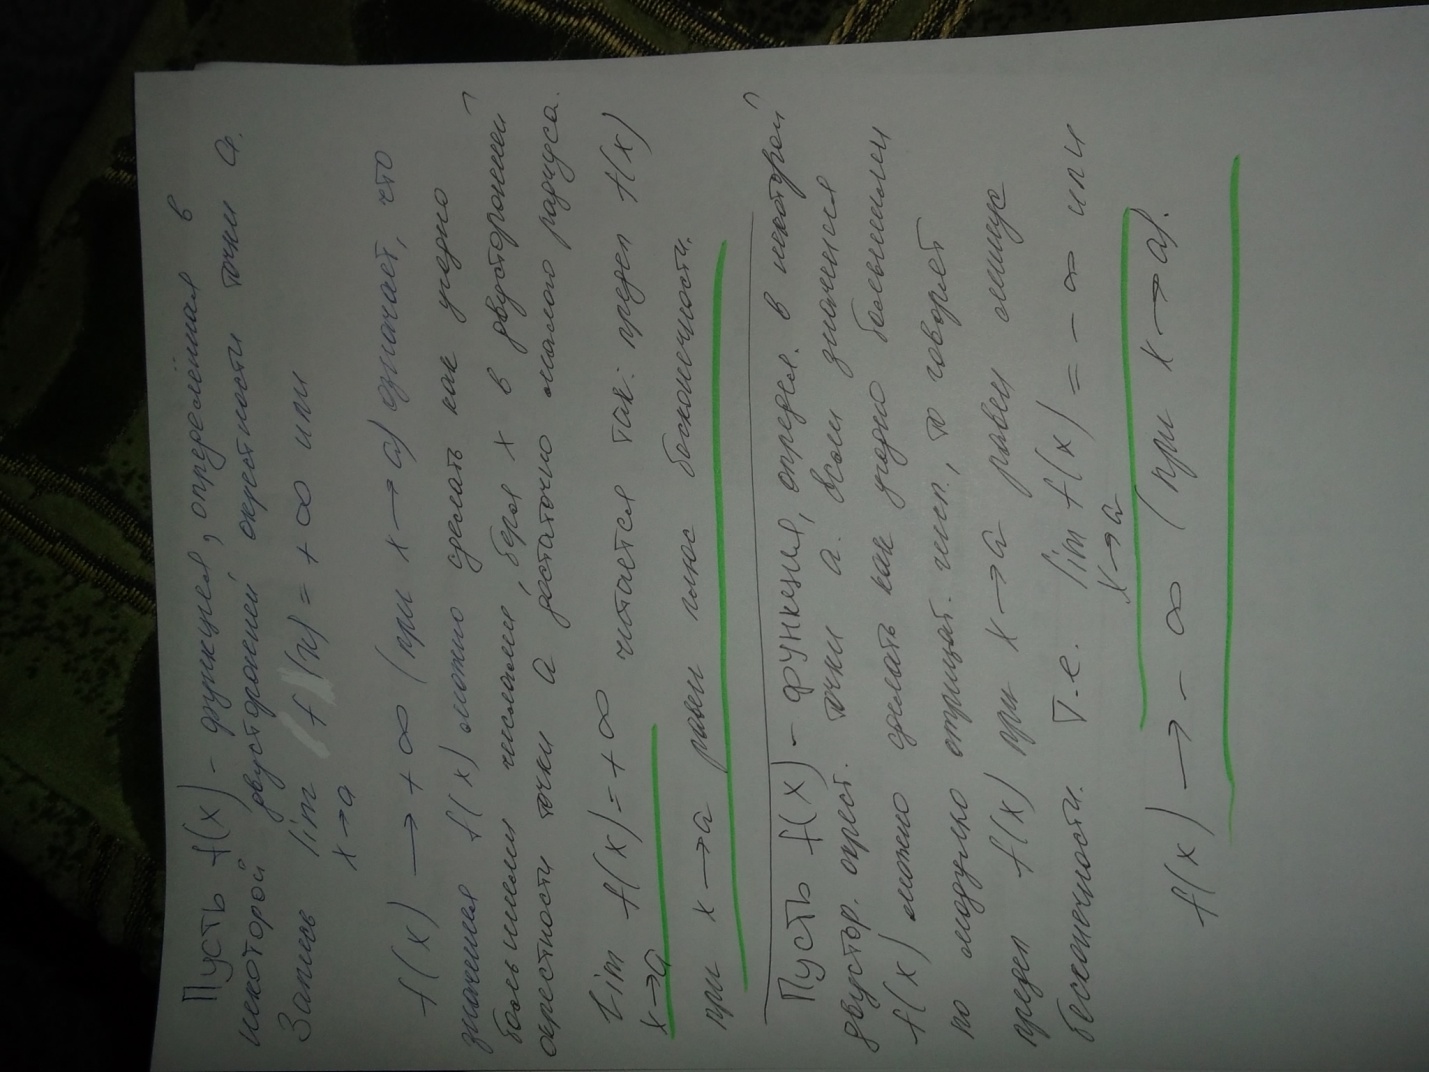 Пусть f(x) - функция, определённая в
некоторой двусторонней окрестности точки a.
Запись lim f(x) = + ∞ или
x → a
f(x) → + ∞ (при x → a) означает, что
значения f(x) можно сделать как угодно
большими числами, беря x в двусторонней
окрестности точки a достаточно малого радиуса.
lim f(x) = + ∞ читается так: предел f(x)
x → a
при x → a равен плюс бесконечности.
Пусть f(x) - функция, определ. в некоторой
двустор. окрест. точки a. Если значения
f(x) можно сделать как угодно большими
по модулю отрицат. числ., то говорят
предел f(x) при x → a равен минус
бесконечности. Т.е. lim f(x) = - ∞ или
x → a
f(x) → - ∞ (при x → a).